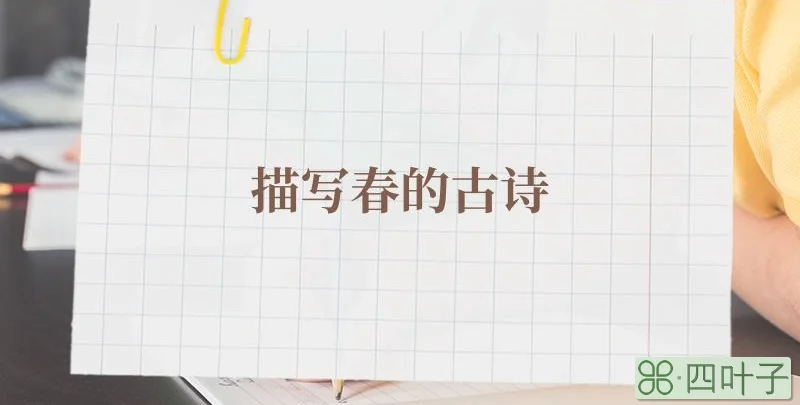 描写春的古诗
四叶子